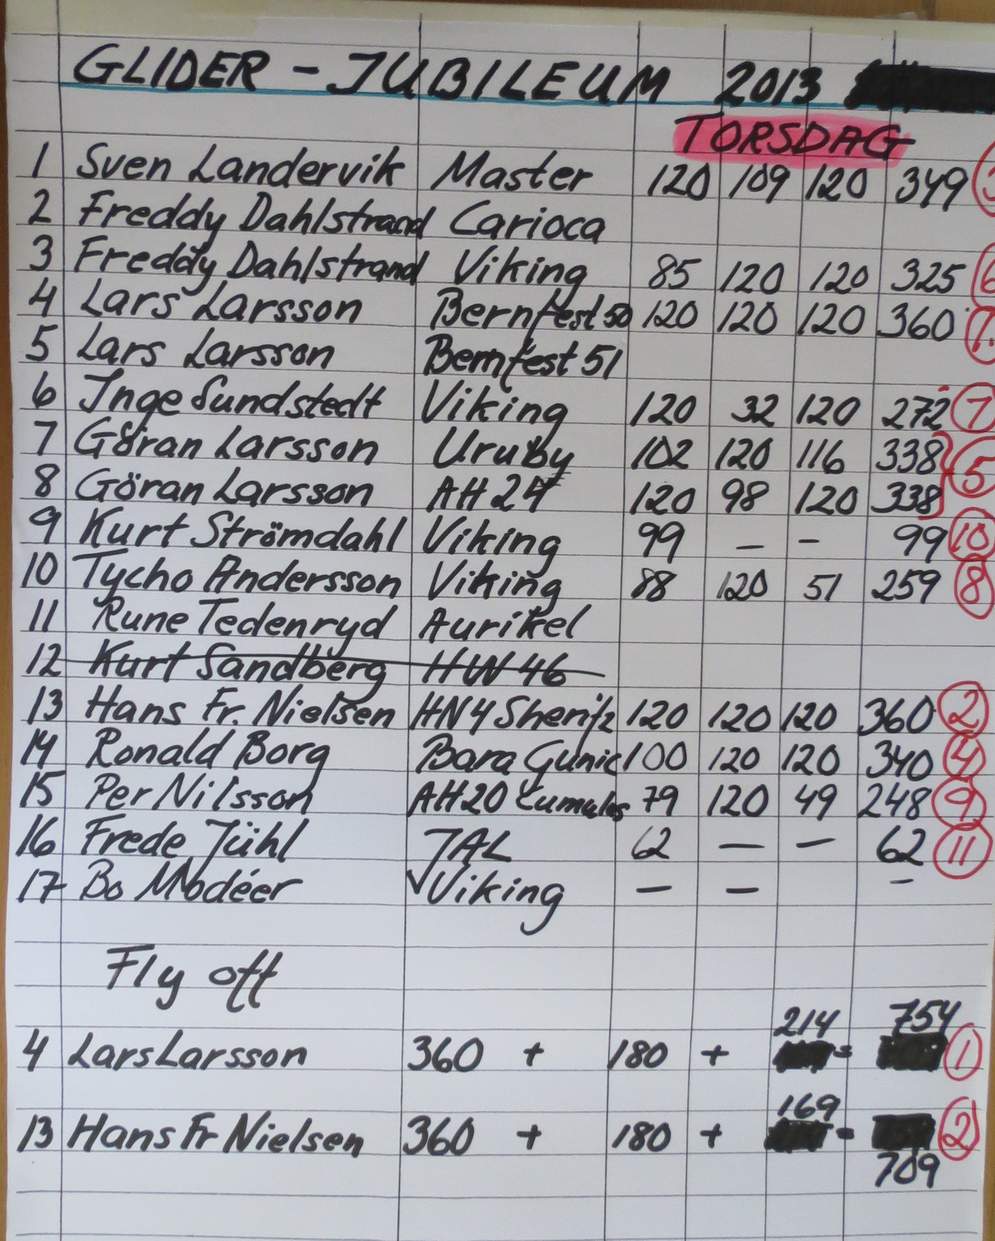 GLIDER - JUBILEUM 2013
TORSDAG
1 Sven Landervik Master 120 109 120 349
2 Freddy Dahlstrand Carioca
3 Freddy Dahlstrand Viking 85 120 120 325 6
4 Lars Larsson Bernfest 50 120 120 120 360 1.
5 Lars Larsson Bernfest 51
6 Inge Sundstedt Viking 120 32 120 272 7
7 Göran Larsson Uruby 102 120 116 338 5
8 Göran Larsson AH 24 120 98 120 338
9 Kurt Strömdahl Viking 99 - - 99 10
10 Tycho Andersson Viking 88 120 51 259 8
11 Rune Tedenryd Aurikel
12 Kurt Sandberg HW 46
13 Hans Fr. Nielsen HN4 120 120 120 360 2
14 Ronald Borg Bara Gunic 100 120 120 340 4
15 Per Nilsson AH20 Cumulus 79 120 49 248 9
16 Frede Jühl JAL 62 - - 62 11
17 Bo Modéer Viking - - -
Fly off
214 754
4 Lars Larsson 360 + 180 + = 1
169
13 Hans Fr Nielsen 360 + 180 + = 2
709